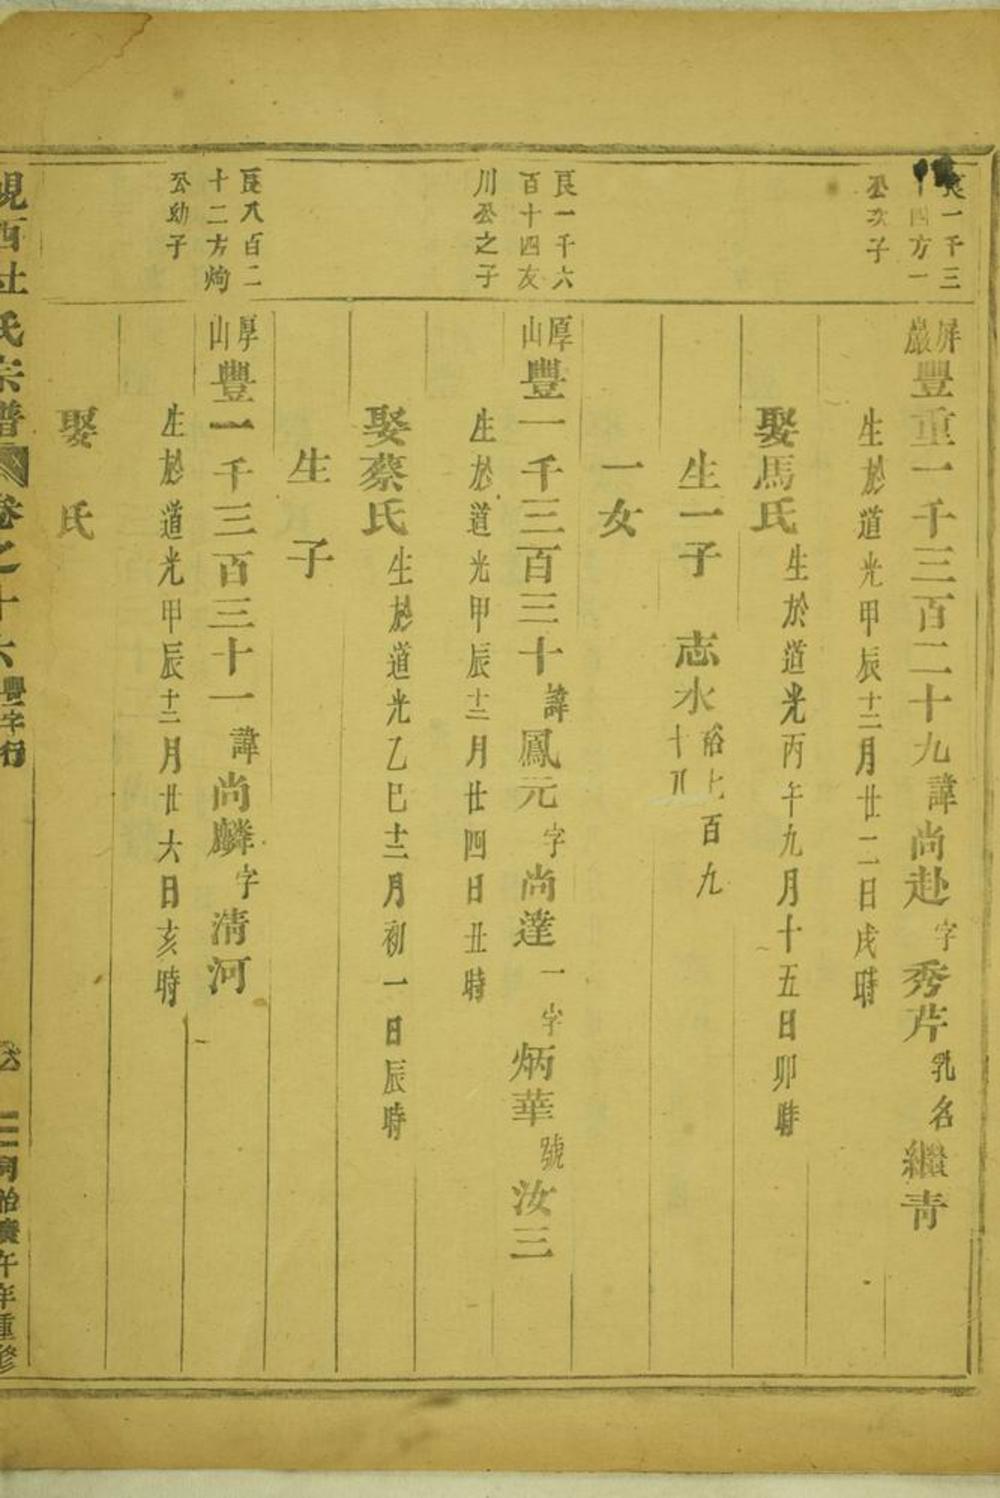 良一千三
十四方一
公次子
屏巖豐重一千三百二十九諱尚赴字秀芹乳名繼靑
生於道光甲辰十二月廿二日戌時
娶馬氏生於道光丙午九月十五日卯時
生一子 志水裕七百九十八
一女
良一千六
百十四友
川公之子
厚山豐一千三百三十諱鳳元字尚達一字炳華號汝三
生於道光甲辰十二月廿四日丑時
娶蔡氏生於道光乙巳十二月初一日辰時
生 子
良八百二
十二方炯
公幼子
厚山豐一千三百三十一諱尚麟字清河
生於道光甲辰十二月廿六日亥時
娶 氏
峴西杜氏宗譜 卷之十六豐字行 同治庚午年重修